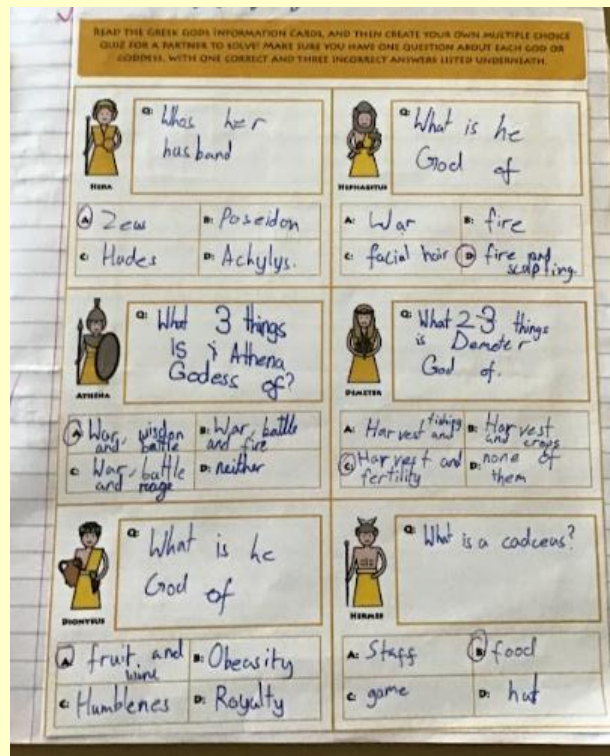 READ THE GREEK GODS INFORMATION CARDS, AND THEN CREATE YOUR OWN MULTIPLE CHOICE
QUIZ FOR A PARTNER TO SOLVE! MAKE SURE YOU HAVE ONE QUESTION ABOUT EACH GOD OR
GODDESS, WITH ONE CORRECT AND THREE INCORRECT ANSWERS LISTED UNDERNEATH.
Q: Whos her
husband
HERA
A: Zeus
B: Poseidon
C: Hades
D: Achylys.
Q: What is he
God of
HEPHAESTUS
A: War
B: fire
C: facial hair
D: fire and
sculpting.
Q: What 3 things
IS Athena
Godess of?
ATHENA
A: War, wisdon
and battle
B: War, battle
and fire
C: War, battle
and rage
D: neither
Q: What 2-3 things
is Demeter
God of.
DEMETER
A: Harvest and fishing
B: Harvest
and crops
C: Harvest and
fertility
D: none of
them
Q: What is he
God of
DIONYSUS
A: fruit and
wind
B: Obeasity
C: Humblenes
D: Royalty
Q: What is a cadceus?
HERMES
A: Staff
B: food
C: game
D: hat